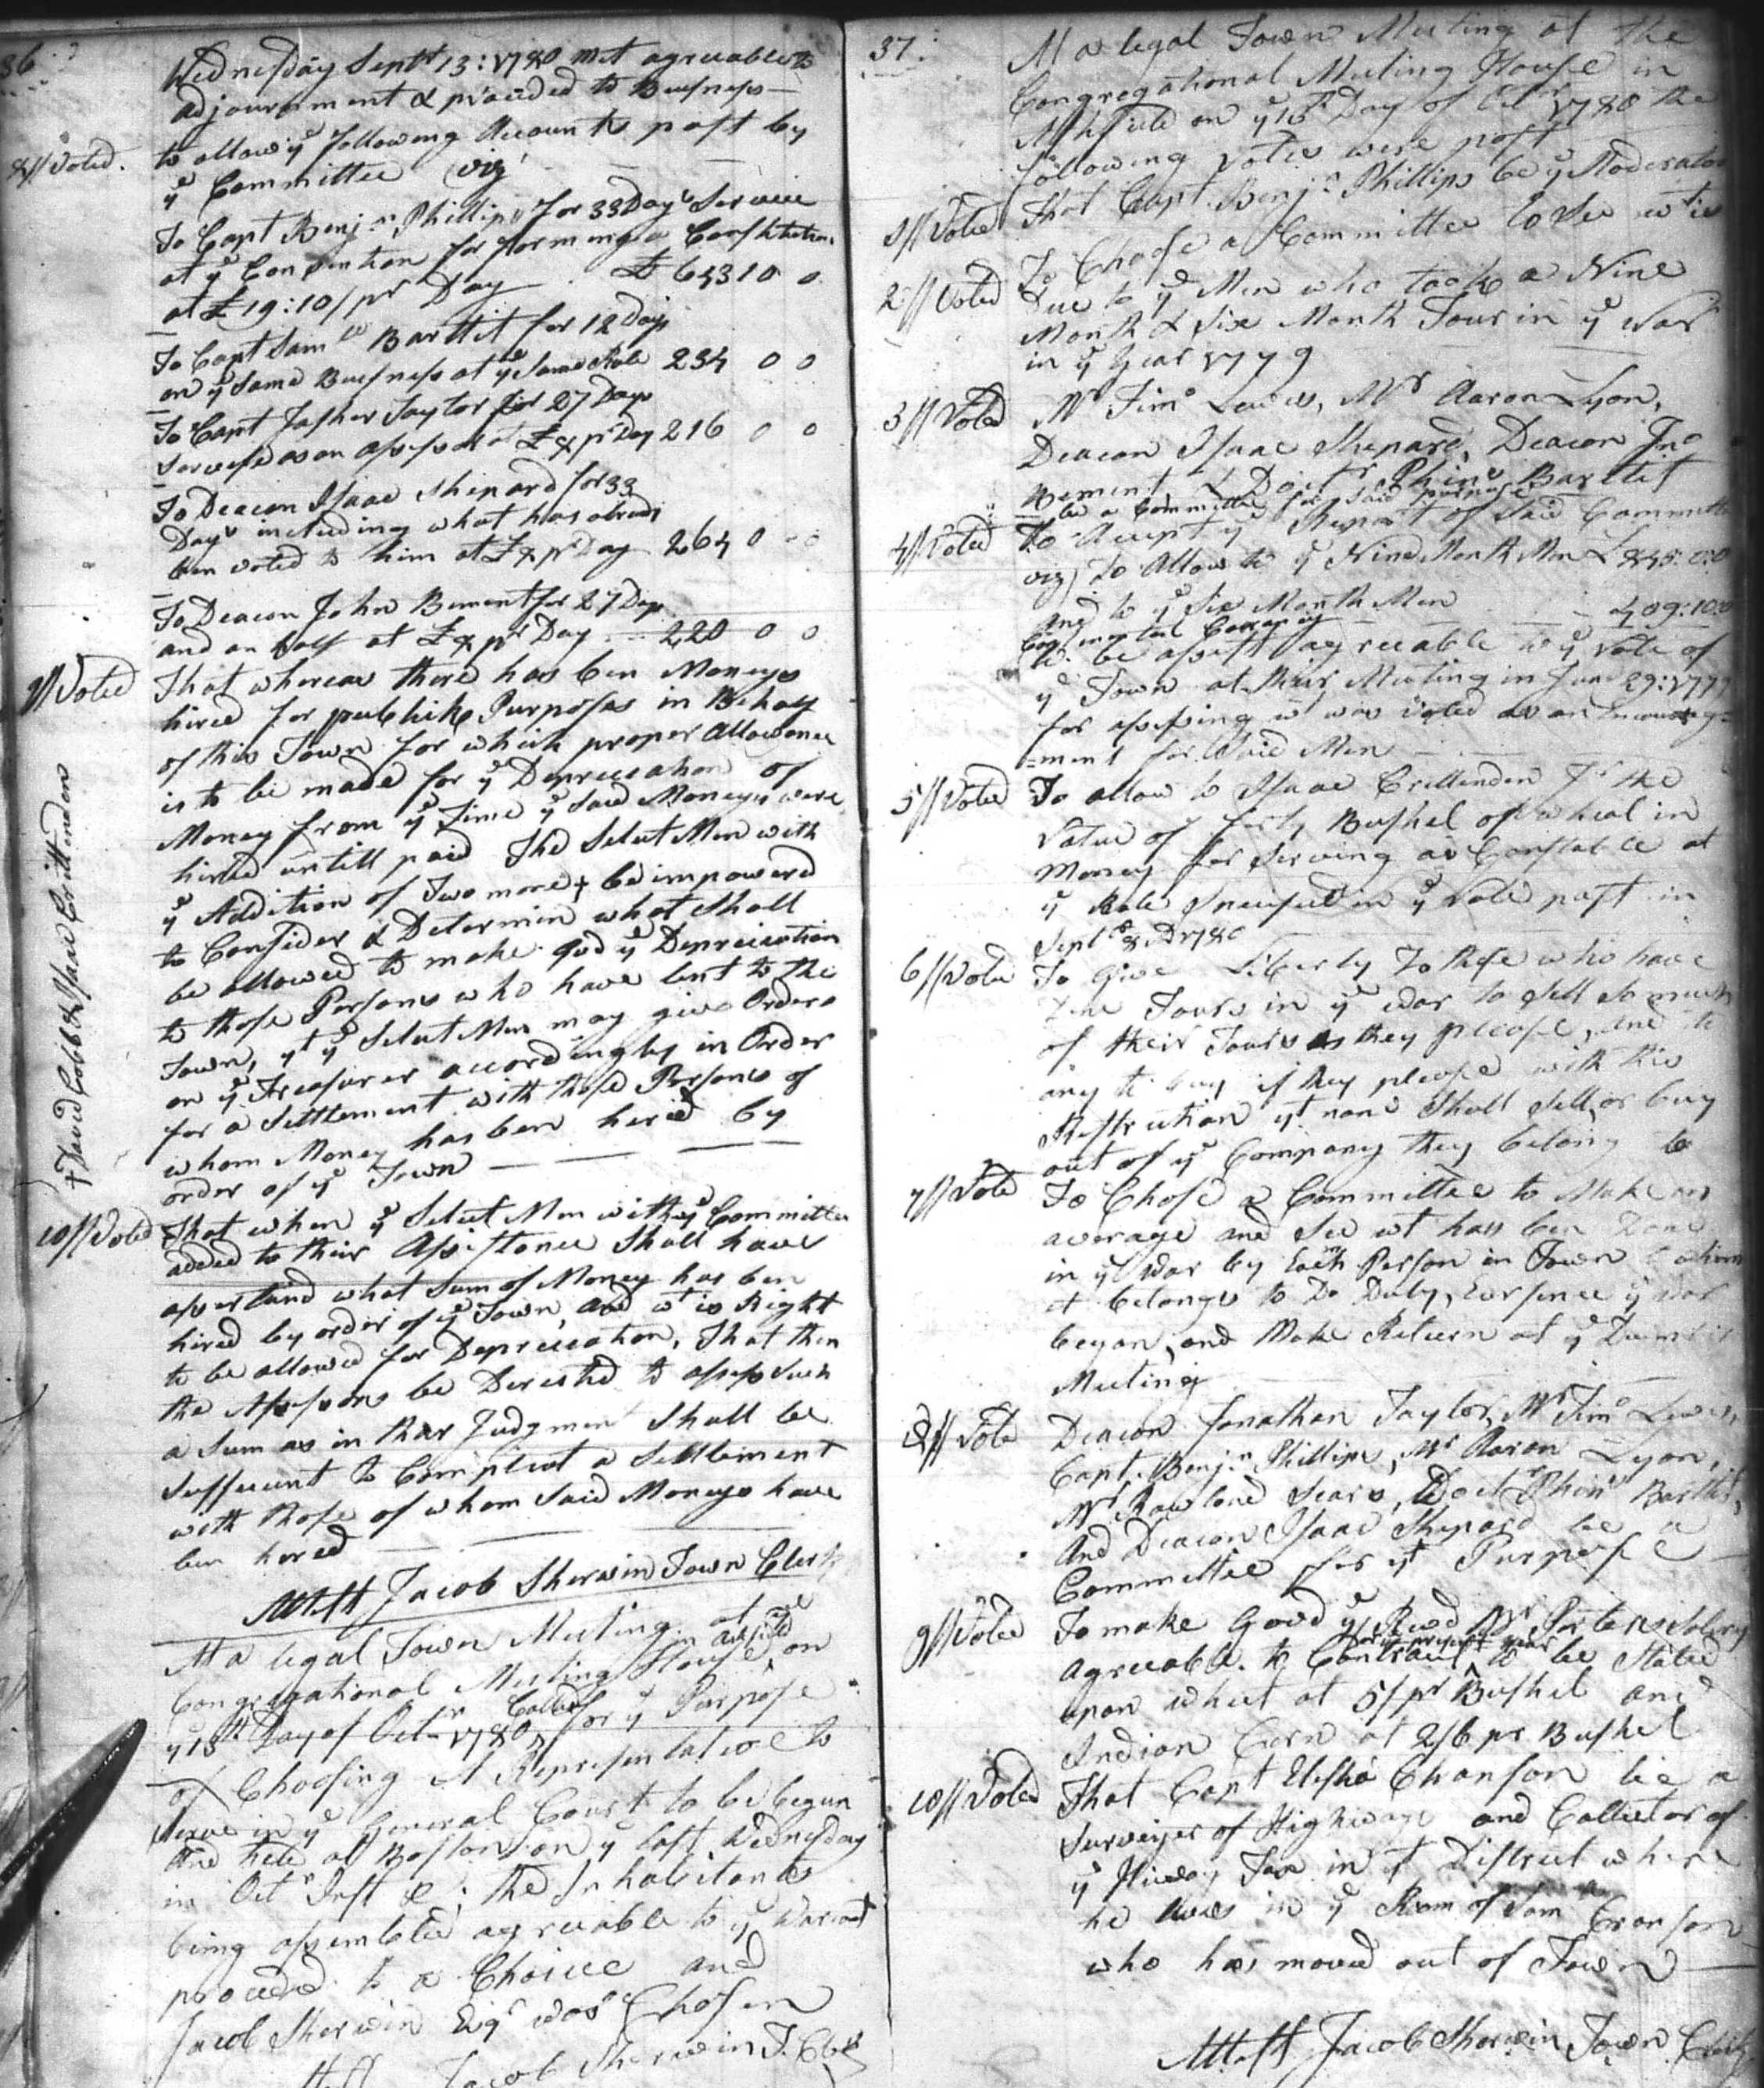 36
Wednesday Sept 13: 1780 met agreable to
adjournment & proceeded to Buisness —
8// Voted. to allow yᵉ following Accounts past by
yᵉ Committee viz
To Capt Benjⁿ Phillips for 33 Days Service
at yᵉ Convention for forming a Constitution
at £19:10/ pʳ Day £643 10 0
To Capt Samˡˡ Bartlit for 12 Days
on yᵉ Same Buisness at yᵉ Same Rate 234 0 0
To Capt Jasher Taylor for 27 Days
Service as an Assessor at £8 pʳ Day 216 0 0
To Deacon Isaac Shepard for 33
Days including what has alredy
ben voted to him at £8 pʳ Day 264 0 0
To Deacon John Bement for 27 Days
and an half at £8 pʳ Day 220 0 0
9// Voted That whereas there has ben Moneys
hired for publick Purposes in Behalf
of this Town for which proper Allowance
is to be made for yᵉ Depreciation of
Money from yᵉ Time yᵉ said Moneys were
hired untill paid The Select Men with
yᵉ Addition of Two more † be impowered
to Consider & Determin what Shall
be allowed to make good yᵉ Depreciation
to those Persons who have lent to the
Town, yᵗ yᵉ Select Men may give Orders
on yᵉ Treasurer accordingly in Order
for a Settlement with those Persons of
whom Money has ben hired by
order of yᵉ Town
† David Cobb & Isaac Crittendon
10// Voted That when yᵉ Select Men with yᵉ Committee
added to their Assistance Shall have
assertaind what Sum of Money has ben
hired by order of yᵉ Town, and wᵗ is Right
to be allowed for Depreciation, That then
the Assessors be Directed to assess such
a Sum as in thar Judgment Shall be
Suffecient to Compleat a Settlement
with those of whom Said Moneys have
ben hired
Attest Jacob Sherwin Town Clerk
At a legal Town Meeting at yᵉ
Congregational Meeting House in Ashfield on
yᵉ 13ᵗʰ Day of Octʳ 1780, Called for yᵉ Purpose
of Choosing A Representative to
Serve in yᵉ General Court to be begun
and held at Boston on yᵉ last Wednesday
in Octʳ Inst &c; the Inhabitants
being assembled agreeable to yᵉ Warrant
proceeded to a Choice and
Jacob Sherwin Esqʳ was Chosen
Attest Jacob Sherwin T. Clerk
37
At a legal Town Meeting at the
Congregational Meeting House in
Ashfield on yᵉ 13ᵗʰ Day of Octʳ 1780 the
following votes were past
1// Voted That Capt. Benjⁿ Phillips be yᵉ Moderator
2// Voted To Chose a Committee to See wᵗ is
Due to yᵉ Men who took a Nine
Month & Six Month Tour in yᵉ War
in yᵉ Year 1779
3// Voted Mʳ Timᵒ Lewis, Mʳ Aaron Lyon,
Deacon Isaac Shepard, Deacon Jnᵒ
Bement & Doctʳ Phinˢ Bartlit
be a Committee for said purpose
4// Voted To Accept yᵉ Report of Said Committee
viz) To Allow to yᵉ Nine Month Men £845:0:0
And to yᵉ Six Month Men 409:10:0
Continental Currancy
to be assest agreeable to yᵉ Vote of
yᵉ Town at their Meeting in June 29: 1779
for assessing wᵗ was voted as an Encouragᵉ
=ment for Said Men
5// Voted To allow to Isaac Crittenden Jʳ the
Value of forty Bushel of wheat in
Money for Serving as Constable at
yᵉ Rate Specified in yᵉ Vote past in
Septᵇʳ 8 AD 1780
6// Vote To Give Liberty To those who have
Done Tours in yᵉ war to Sell so much
of their Tours as they please, and to
any to buy if they please with this
Restriction yᵗ none Shall Sell, or buy
out of yᵉ Company they belong to
7// Vote To Chose a Committee to Make an
average and See wᵗ has ben Done
in yᵉ War by Each Person in Town to whom
it belongs to Do Duty, Ever Since yᵉ War
began, and Make Return at yᵉ Decembʳ
Meeting
8// Vote Deacon Jonathan Taylor, Mʳ Timᵒ Lewis,
Capt. Benjⁿ Phillips, Mʳ Aaron Lyon,
Mʳ Rowland Sears, Doctʳ Phinˢ Bartlit,
And Deacon Isaac Shepard be a
Committee for yᵗ Purpose
9// Voted To make Good yᵉ Revd Mʳ Porters Salery
agreeable to Contract for yᵉ present year to be Stated
upon wheat at 5/ pʳ Bushel and
Indian Corn at 2/6 pr Bushel
10// Voted That Capt Elisha Cranson be a
Surveyer of Highways and Collector of
yᵉ Hiway Tax in yᵗ District where
he lives in yᵉ Room of Samˡˡ Cranson
who has moved out of Town
Attest Jacob Sherwin Town Clerk